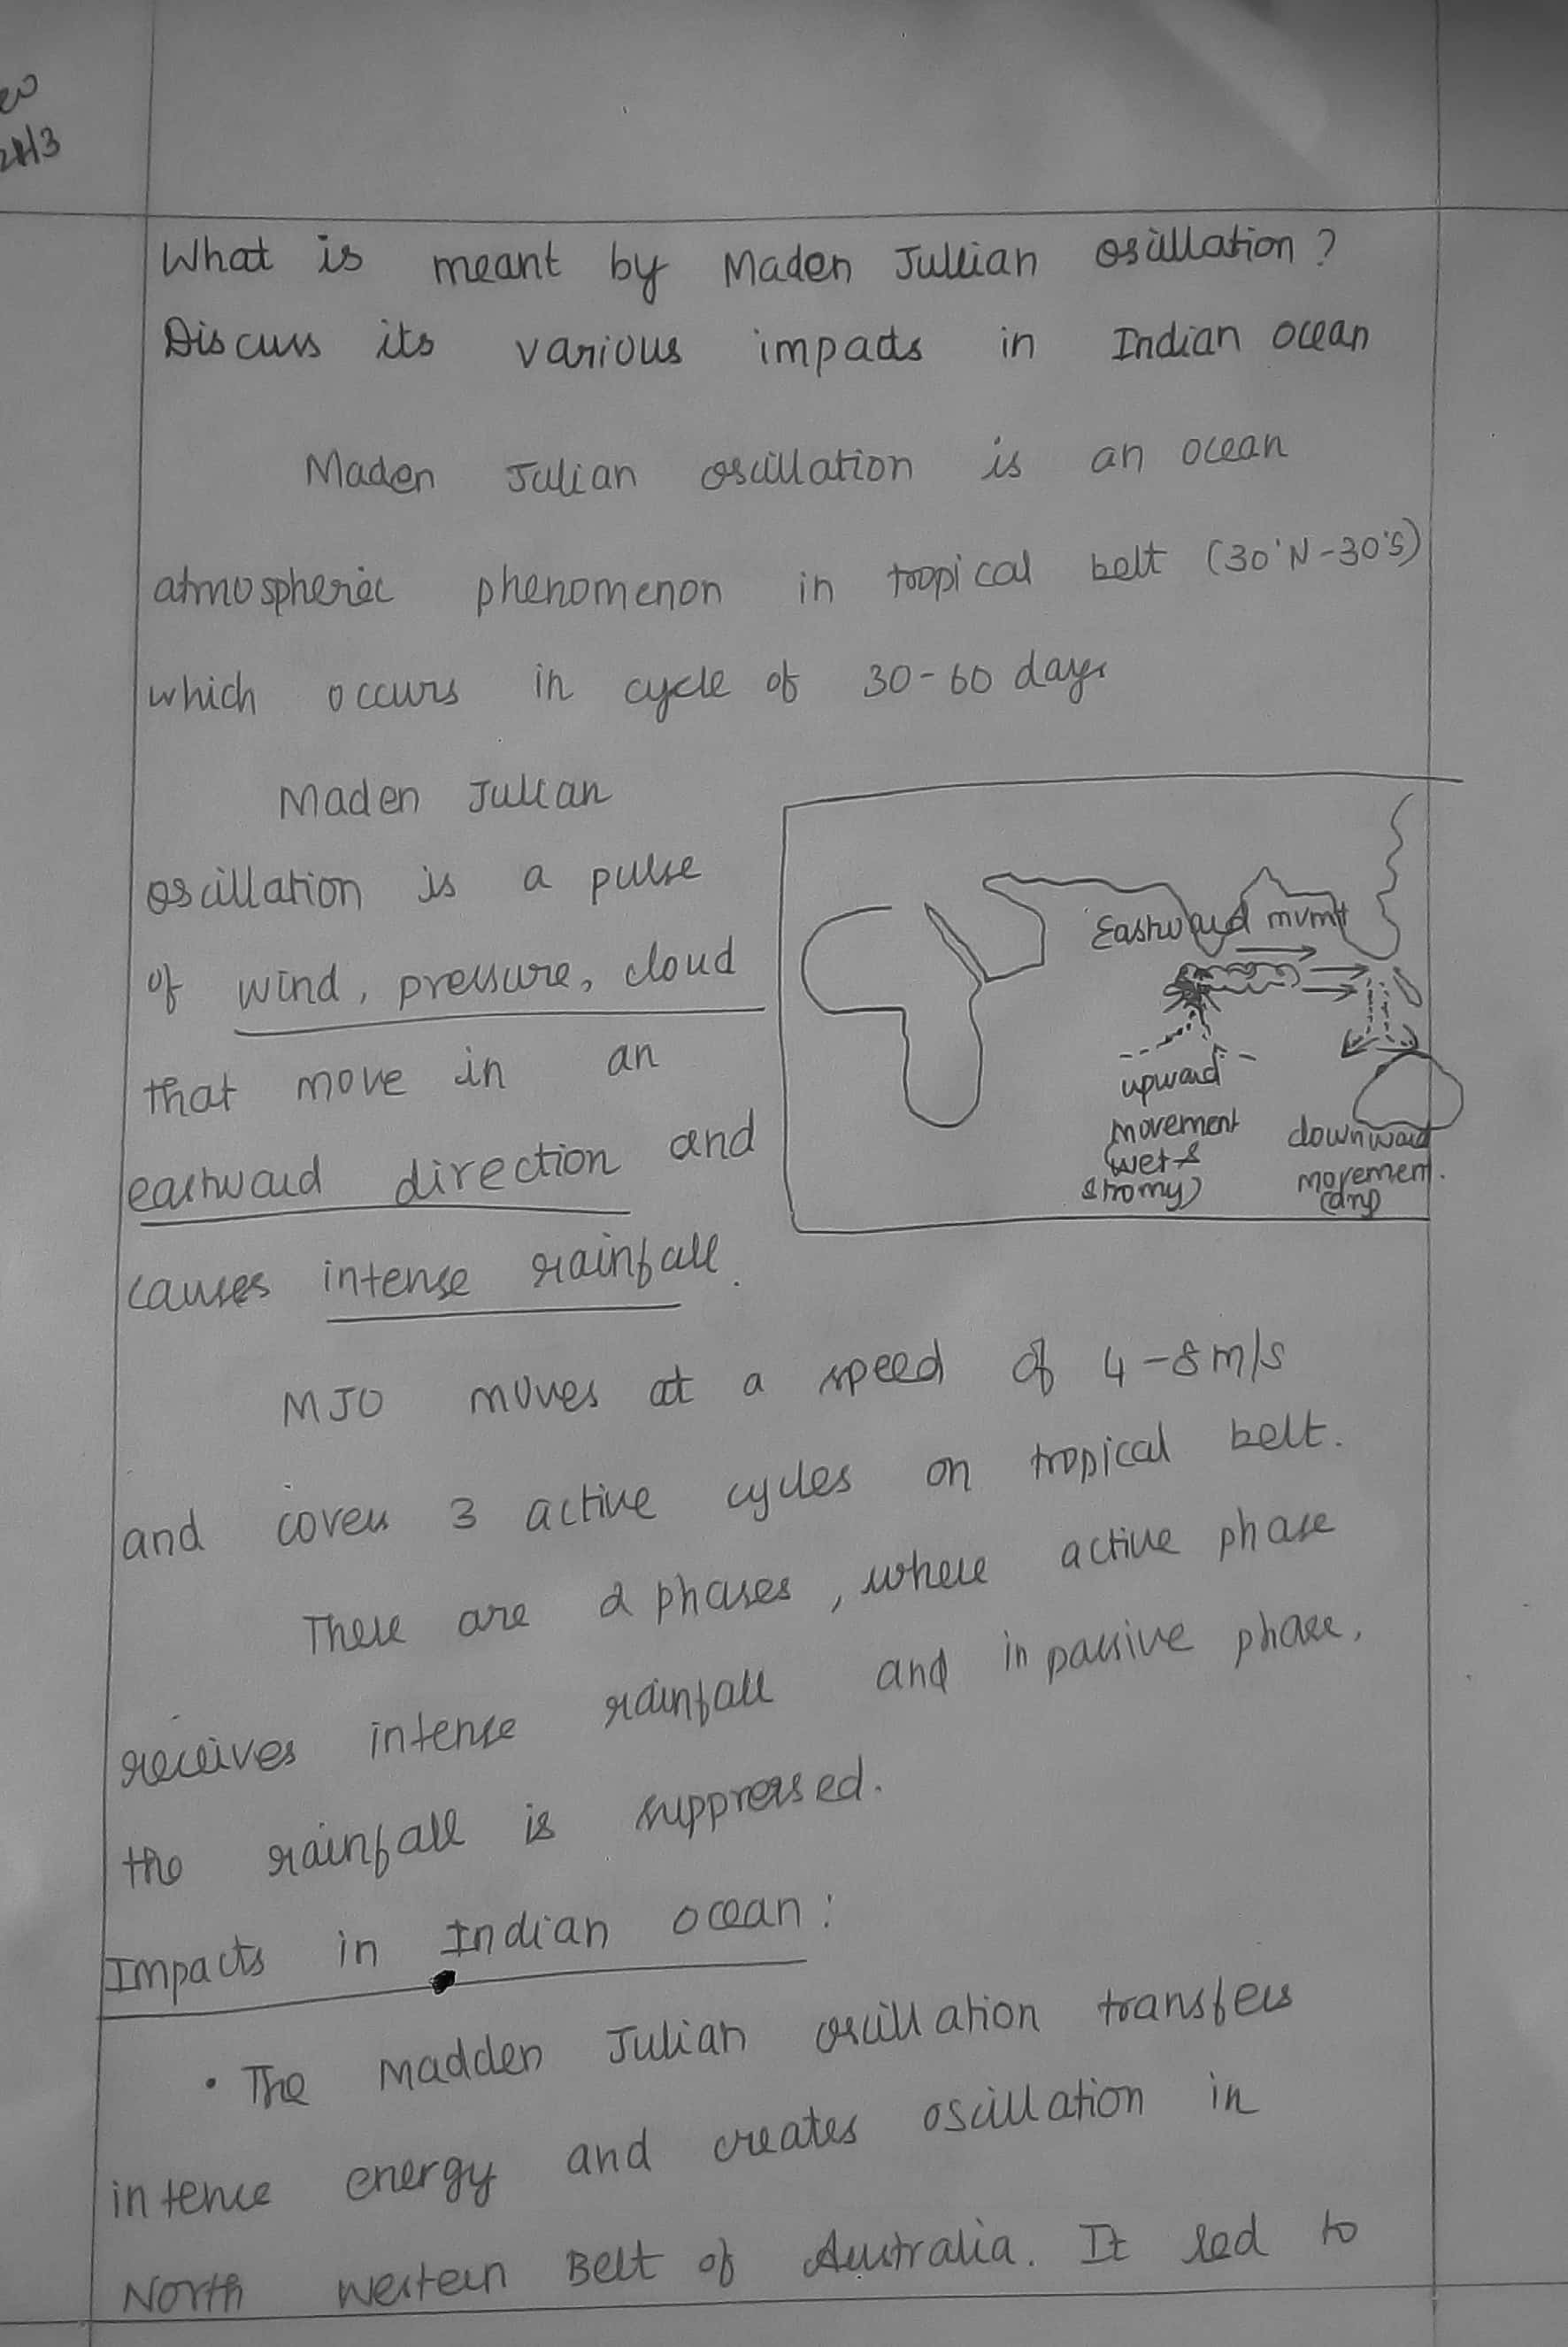 24/3
What is meant by Maden Jullian osillation?
Discuss its various impacts in Indian ocean
Maden Julian oscillation is an ocean
atmospheric phenomenon in tropical belt (30°N-30°S)
which occurs in cycle of 30-60 days
Maden Julian
oscillation is a pulse
of wind, pressure, cloud
that move in an
eastward direction and
causes intense rainfall.
Eastward mvmt
upward
movement
(wet &
stromy)
downward
movement.
(dry)
MJO moves at a speed of 4-8m/s
and covers 3 active cycles on tropical belt.
There are 2 phases, where active phase
receives intense rainfall and in passive phase,
the rainfall is suppressed.
Impacts in Indian ocean:
• The Madden Julian oscillation transfers
intence energy and creates oscillation in
North western Belt of Australia. It led to